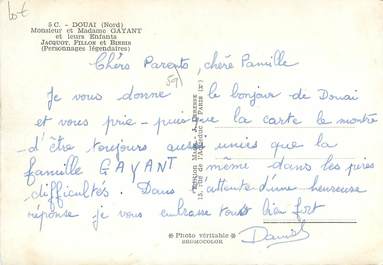 Lot
5 C. - DOUAI (Nord)
Monsieur et Madame GAYANT
et leurs Enfants
JACQUOT, FILLON et BINBIN
(Personnages légendaires)
Chers Parents, chère Famille
Je vous donne le bonjour de Douai
et vous prie - puisque la carte le montre
- d'être toujours aussi unies que la
famille GAYANT même dans les pires
difficultés. Dans l'attente d'une heureuse
réponse je vous embrasse tous bien fort
Daniel
Édition Mage - J.
15, rue de l'Aqueduc - PARIS (Xe)
* Photo véritable *
BROMOCOLOR